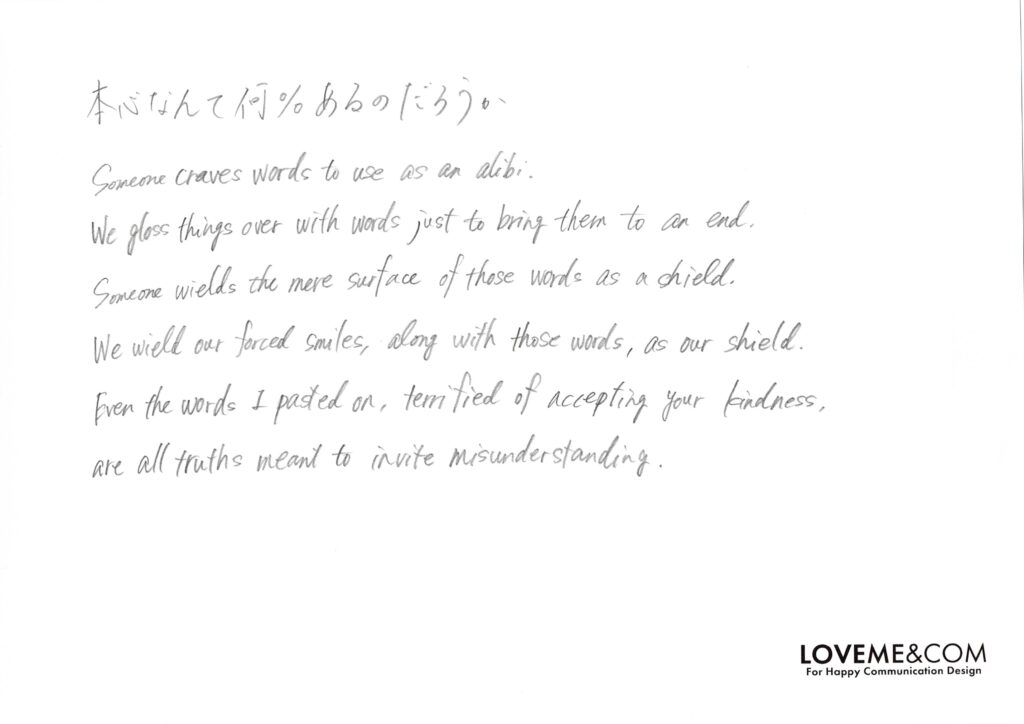 本心なんて何%あるのだろうか
Someone craves words to use as an alibi.
We gloss things over with words just to bring them to an end.
Someone wields the mere surface of those words as a shield.
We wield our forced smiles, along with those words, as our shield.
Even the words I pasted on, terrified of accepting your kindness,
are all truths meant to invite misunderstanding.
LOVEME&COM
For Happy Communication Design